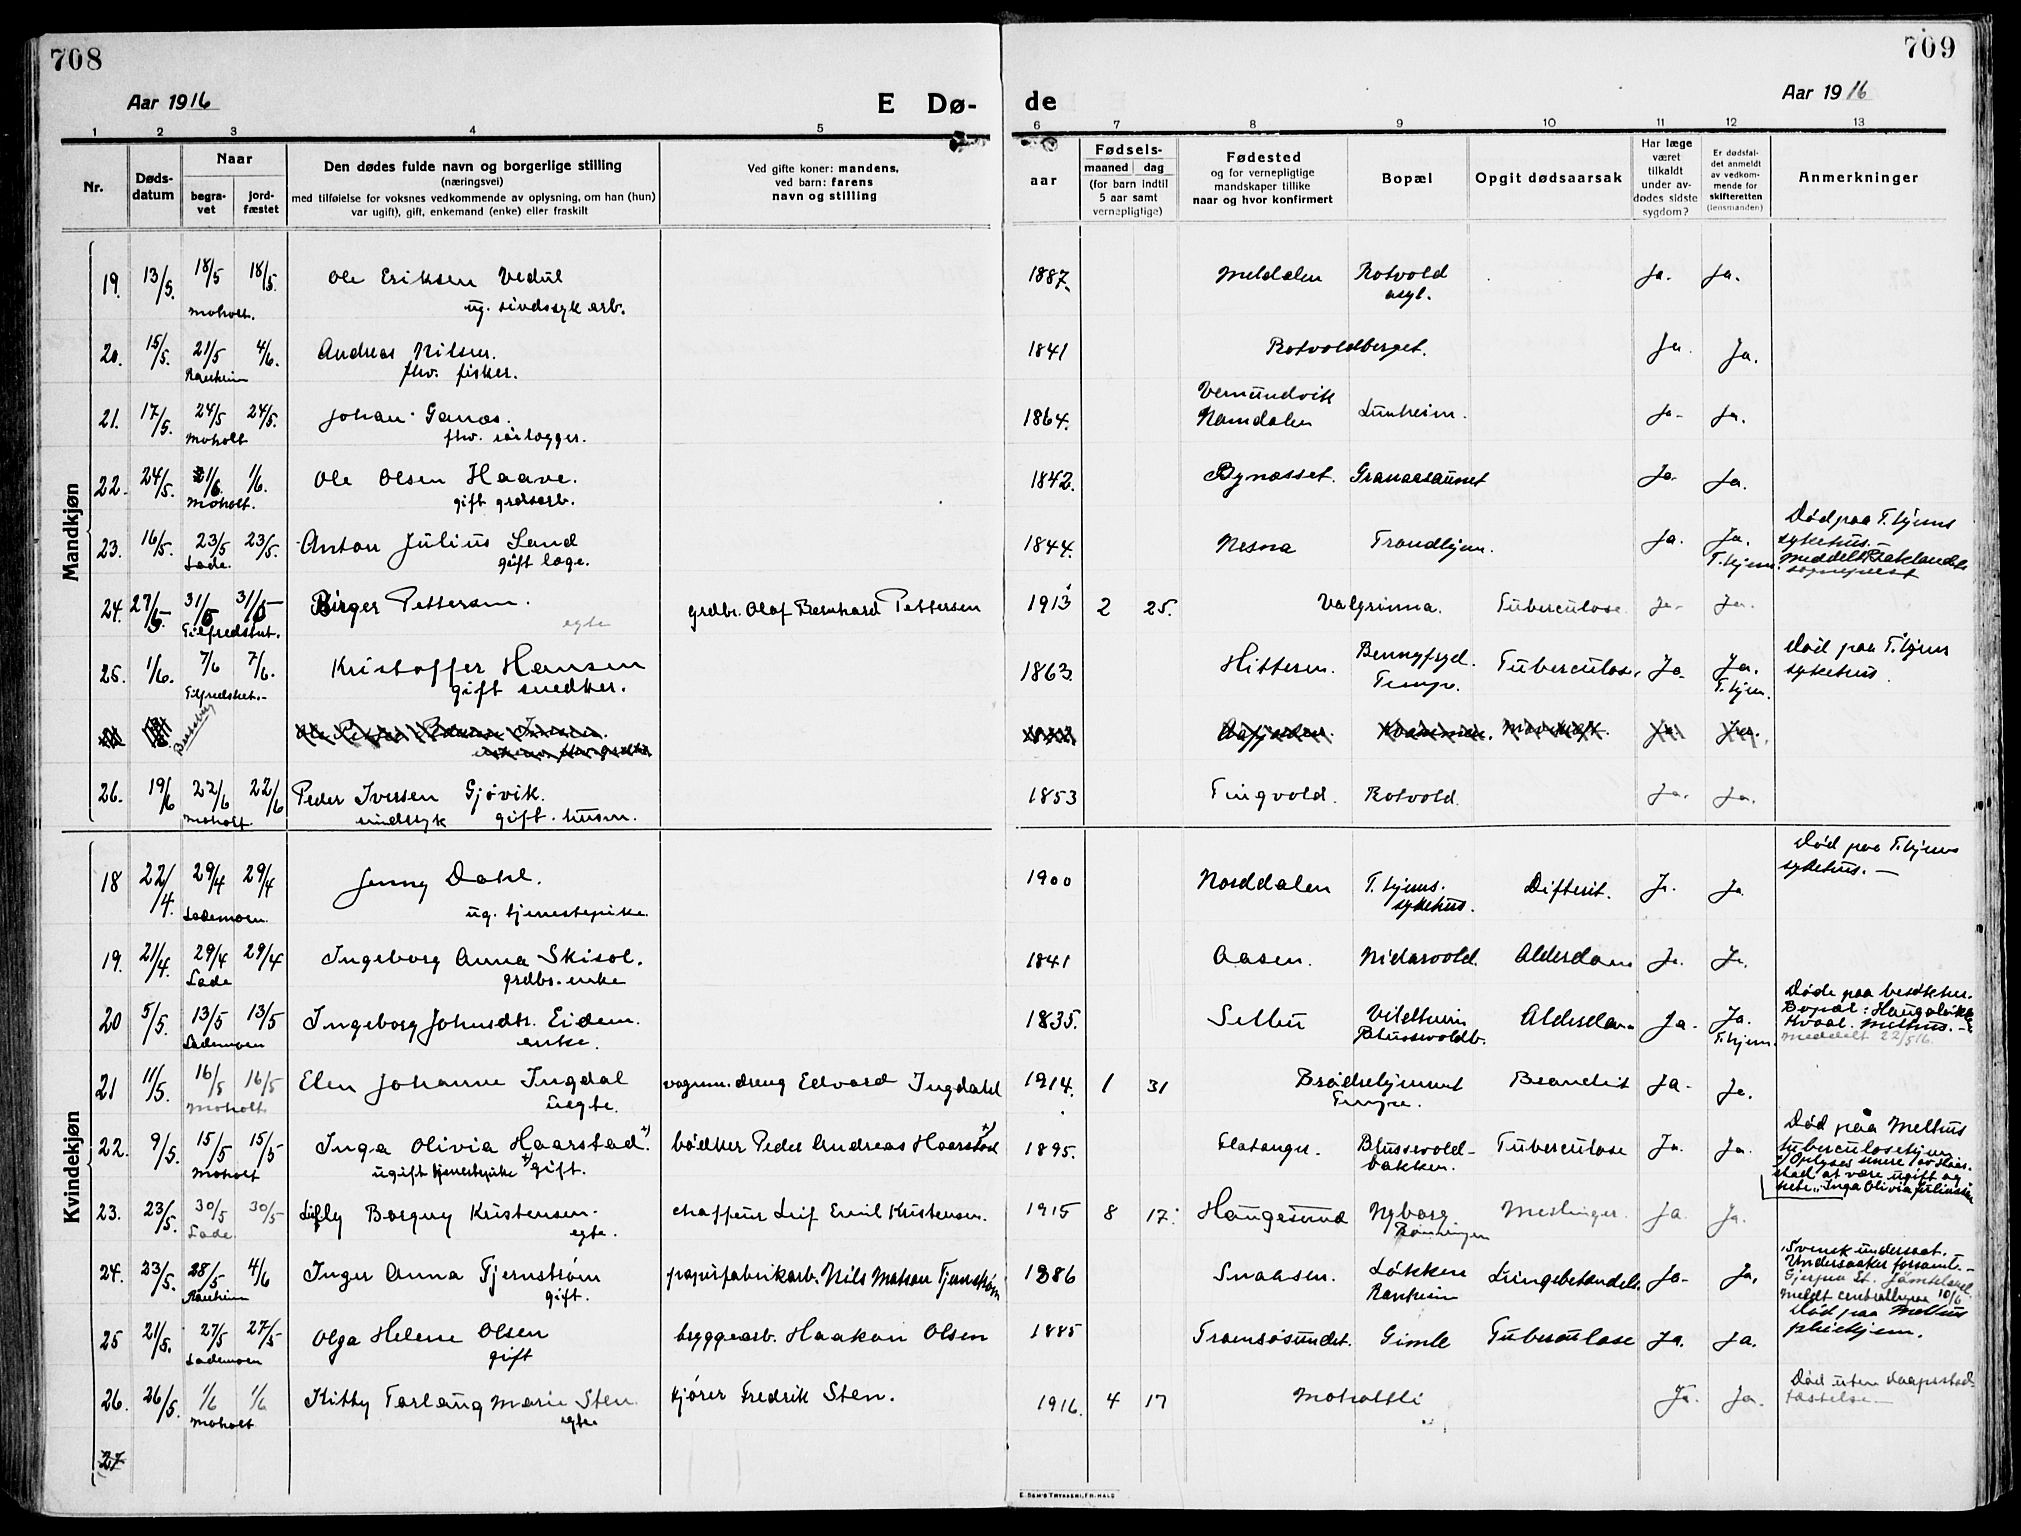 708
709
Aar 1916
E Dø-
de
Aar 1916
1 2 3 4 5 6 7 8 9 10 11 12 13
Nr.
Døds-
datum
Naar
begra-
vet
jord-
fæstet
Den dødes fulde navn og borgerlige stilling
(næringsvei)
med tilføielse for voksnes vedkommende av oplysning, om han (hun)
var ugift), gift, enkemand (enke) eller fraskilt
Ved gifte koner: mandens,
ved barn: farens
navn og stilling
aar
Fødsels-
maaned dag
(for barn indtil
5 aar samt
vernepligtige)
Fødested
og for vernepligtige
mandskaper tillike
naar og hvor konfirmert
Bopæl
Opgit dødsaarsak
Har læge
været
tilkaldt
under av-
dødes sidste
sygdom?
Er dødsfal-
det anmeldt
av vedkom-
mende for
skifteretten
(lensmanden)
Anmerkninger
Mandkjøn
19. 13/5. 18/5 18/5. Ole Eriksen Vedul 1887. Meldalen Rotvold Ja. Ja.
Moholt. ug. sindssyk arb. asyl.
20. 15/5. 21/5 4/6. Andreas Nilsen. 1841 Rotvoldberget. Ja. Ja.
Ranheim fhv. fisker.
21. 17/5. 24/5 24/5. Johan Ganæs. 1864. Vemundvik
Namdalen Ja. Ja.
Moholt fhv.
22. 24/5. 1/6. 1/6. Ole Olsen Haave. 1842. Bynæsset. Ja. Ja.
Moholt. gift grdsarb.
23. 16/5. 23/5 23/5. Anton Julius Sand 1844. Nesna Trondhjem. Ja. Ja. Død paa T.hjems
sykehus.
Lade. gift læge. T.hjem. Meddelt Baklandets
sogneprest
24. 27/5. 31/5 31/5 Birger Pettersen. grdbr. Olaf Bernhard Pettersen 1913 2 25. Valgrinna. Tuberculose. Ja. Ja.
Tilfredshet. egte
25. 1/6. 7/6 7/6. Kristoffer Hansen 1863. Hitteren. Tuberculose. Ja. Ja. Død paa T.hjem
sykehus.
Tilfredshet. gift snedker. Tempe. T.hjem.
26. 19/6 22/6 22/6 Peder Iversen Gjøvik. 1853 Tingvold. Rotvold. Ja. Ja.
Moholt. sindssyk gift. husm.
Kvindekjøn
18 22/4. 29/4 29/4 Jenny Dahl. 1900 Norddalen T.hjems. Difterit. Ja. Ja Død paa T.hjems
sykehus.
Lademoen. ug. tjenestepike. sykehus.
19. 21/4. 29/4 29/4 Ingeborg Anna Skisol. 1841 Aasen. Nidarvold. Alderdom Ja. Ja.
Lade grdbr. enke
20 5/5. 13/5 13/5 Ingeborg Johnsdtr. Eidem. 1835. Selbu Alderdom Ja. Ja. Døde paa besøk her.
Bopæl: Haugaløkke
Kvaal. Melhus.
Meddelt 22/5 16.
Lademoen enke. Blussuvoldb. T.hjem.
21 11/5. 16/5 16/5 Elen Johanne Ingdal vognm. dreng Edvard Ingdahl 1914. 1 31 Brødrehjemmet Ja. Ja.
Moholt uegte. Tempe.
22. 9/5. 15/5 15/5 Inga Olivia Haarstad. bødker Peder Andreas Haarstad 1895. Flatanger. Blussvold- Tuberculose Ja. Ja. Død paa Melhus
tuberculosehjem
Moholt ugift tjenestepike gift. bakken. stad at være ugift og
hete „Inga Olivia
23. 23/5. 30/5 30/5 Borgny Kristensen. chaffeur Leif Emil Kristensen. 1915 8 17. Haugesund Nyborg Meslinger. Ja. Ja.
Lade. egte.
24. 23/5. 28/5 4/6 Inger Anna Tjernstrøm papirfabrikarb. Nils Matson Tjernstrøm 1886 Snaasen. Løkken Lungebetændelse Ja. Ja. Svensk undersaat.
Undersaaker forsaml.
Ranheim gift. Ranheim
25 21/5. 27/5 27/5 Olga Helene Olsen bryggearb. Haakon Olsen 1885 Tromsøsundet. Gimle Tuberculose Ja. Ja. Død paa Melhus
pleiehjem.
Lademoen gift
26. 26/5. 1/6 1/6 Kitty Torlaug Marie Sten. kjører Fredrik Sten. 1916. 4 17 Moholtli Ja. Ja. Død uten daapsstad-
fæstelse.
Moholt egte
27
E. SEM'S TRYKKERI, FR.HALD